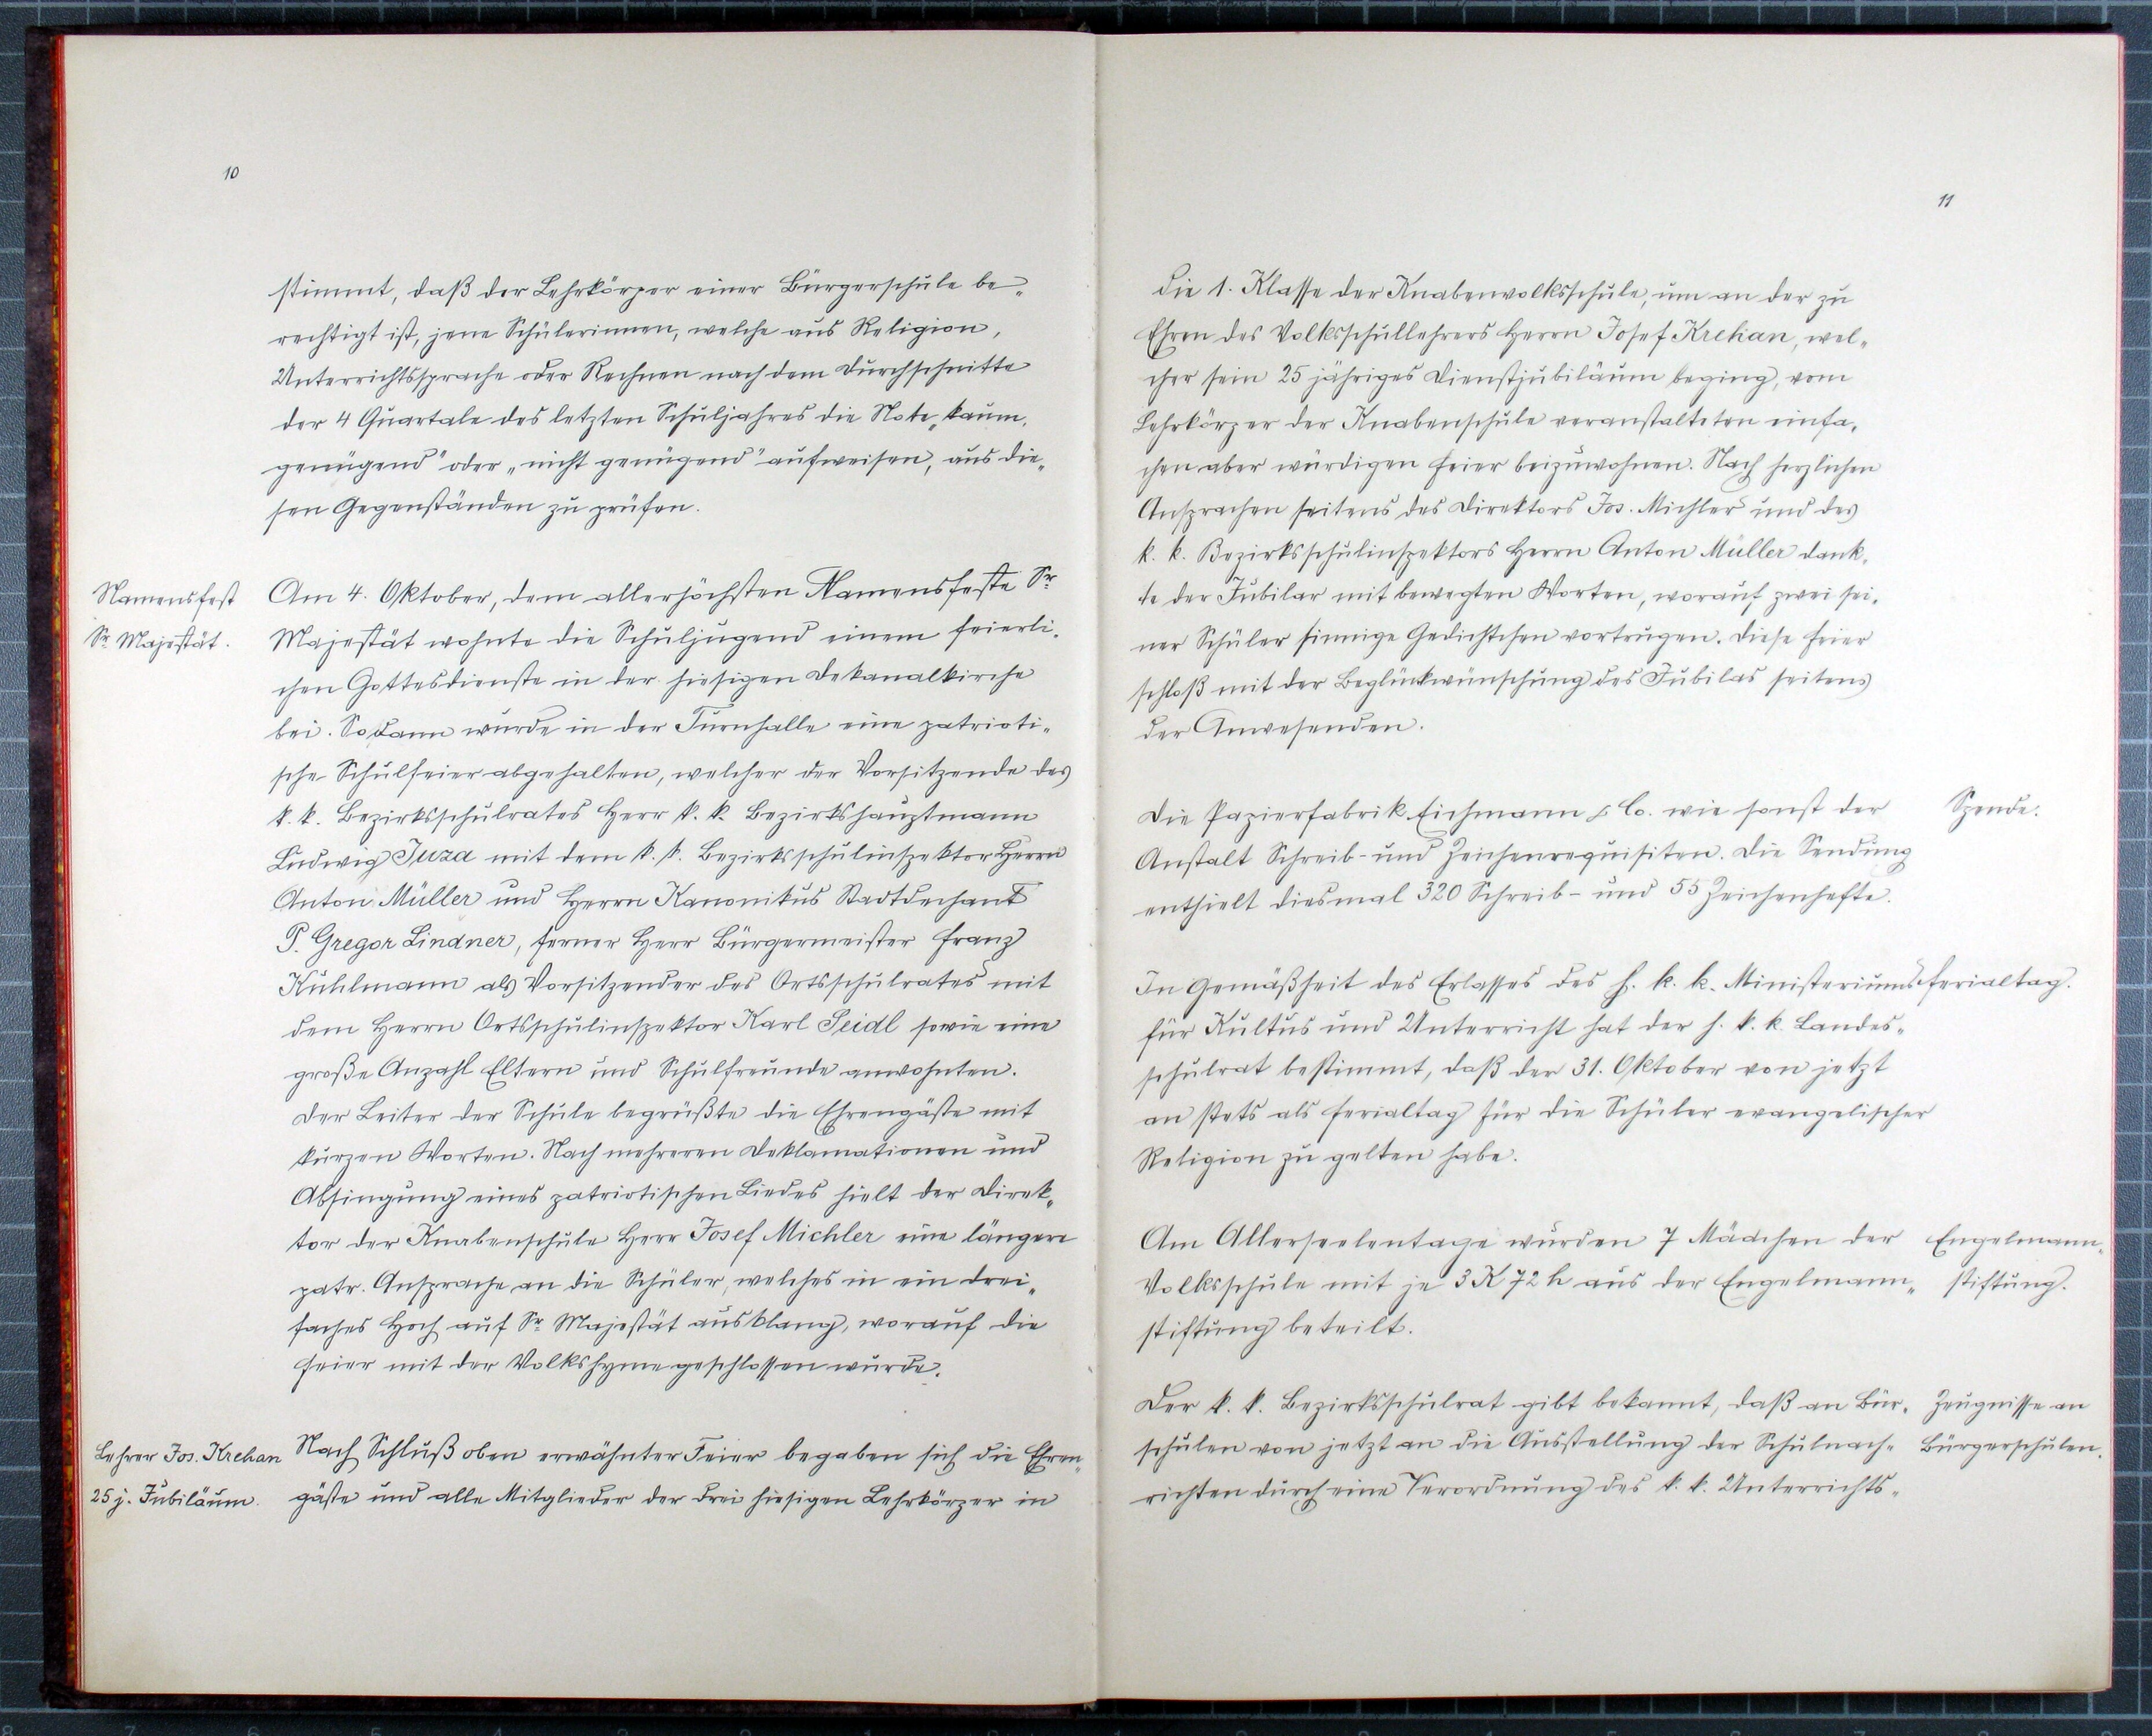 10
stimmt, daß der Lehrkörper einer Bürgerschule be„
rechtigt ist, jene Schülerinnen, welche aus Religion,
Unterrichtssprache oder Rechnen nach dem Durchschnitte
der 4 Quartale des letzten Schuljahres die Note „kaum„
genügend" oder „nicht genügend" aufweisen, aus die„
sen Gegenständen zu prüfen.
Namensfest
Sr. Majestät.
Am 4. Oktober, dem allerhöchsten Namensfeste Sr.
Majestät wohnte die Schuljugend einem feierli„
chen Gottesdienste in der hiesigen Dekanalkirche
bei. Sodann wurde in der Turnhalle eine patrioti„
sche Schulfeier abgehalten, welcher der Vorsitzende des
k. k. Bezirksschulrates Herr k. k. Bezirkshauptmann
Ludwig Juza mit dem k. k. Bezirksschulinspektor Herrn
Anton Müller und Herrn Kanonikus Stadtdechant
P. Gregor Lindner, ferner Herr Bürgermeister Franz
Kuhlmann als Vorsitzender des Ortsschulrates mit
dem Herrn Ortsschulinspektor Karl Seidl sowie eine
große Anzahl Eltern und Schulfreunde anwohnten.
Der Leiter der Schule begrüßte die Ehrengäste mit
kurzen Worten. Nach mehreren Deklamationen und
Absingung eines patriotischen Liedes hielt der Direk„
tor der Knabenschule Herr Josef Michler eine längere
patr. Ansprache an die Schüler, welches in ein drei„
faches Hoch auf Sr. Majestät ausklang, worauf die
Feier mit der Volkshyme geschlossen wurde.
Lehrer Jos. Krehan
25 j. Jubiläum.
Nach Schluß oben erwähnter Feier begaben sich die Ehren„
gäste und alle Mitglieder der drei hiesigen Lehrkörper in
11
die 1. Klasse der Knabenvolksschule, um an der zu
Ehren des Volksschullehrers Herrn Josef Krehan, wel„
cher sein 25 jähriges Dienstjubiläum beging, vom
Lehrkörper der Knabenschule veranstalteten einfa„
chen aber würdigen Feier beizuwohnen. Nach herzlichen
Ansprachen seitens des Direktors Jos. Michler und des
k. k. Bezirksschulinspektors Herrn Anton Müller dank„
te der Jubilar mit bewegten Worten, worauf zwei sei„
ner Schüler sinnige Gedichtchen vortrugen. Diese Feier
schloß mit der Beglückwünschung des Jubilas seitens
der Anwesenden.
Die Papierfabrik Eichmann & Co. wie sonst der
Anstalt Schreib- und Zeichenrequisiten. Die Sendung
enthielt diesmal 320 Schreib- und 55 Zeichenhefte.
Spende.
In Gemäßheit des Erlasses des h. k. k. Ministeriums
für Kultus und Unterricht hat der h. k. k. Landes„
schulrat bestimmt, daß der 31. Oktober von jetzt
an stets als Ferialtag für die Schüler evangelischer
Religion zu gelten habe.
Ferialtag.
Am Allerseelentage wurden 7 Mädchen der
Volksschule mit je 3 K 72 h aus der Engelmann„
stiftung beteilt.
Engelmann„
stiftung.
Der k. k. Bezirksschulrat gibt bekannt, daß an Bür„
schulen von jetzt an die Ausstellung der Schulnach„
richten durch eine Verordnung des k. k. Unterrichts„
Zeugnisse an
Bürgerschulen.